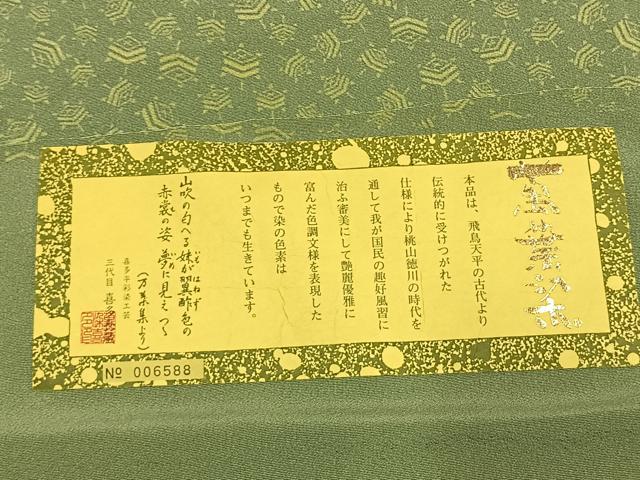 本品は、飛鳥天平の古代より
伝統的に受けつがれた
仕様により桃山徳川の時代を
通して我が国民の趣好風習に
治ふ審美にして艶麗優雅に
富んだ色調文様を表現した
もので染の色素は
いつまでも生きています。
山吹の匂へる妹が翼酢色の
いも はねず
赤裳の姿夢に見えつゝ
(万葉集より)
喜多平彩染工芸
三代目 喜多
№ 006588